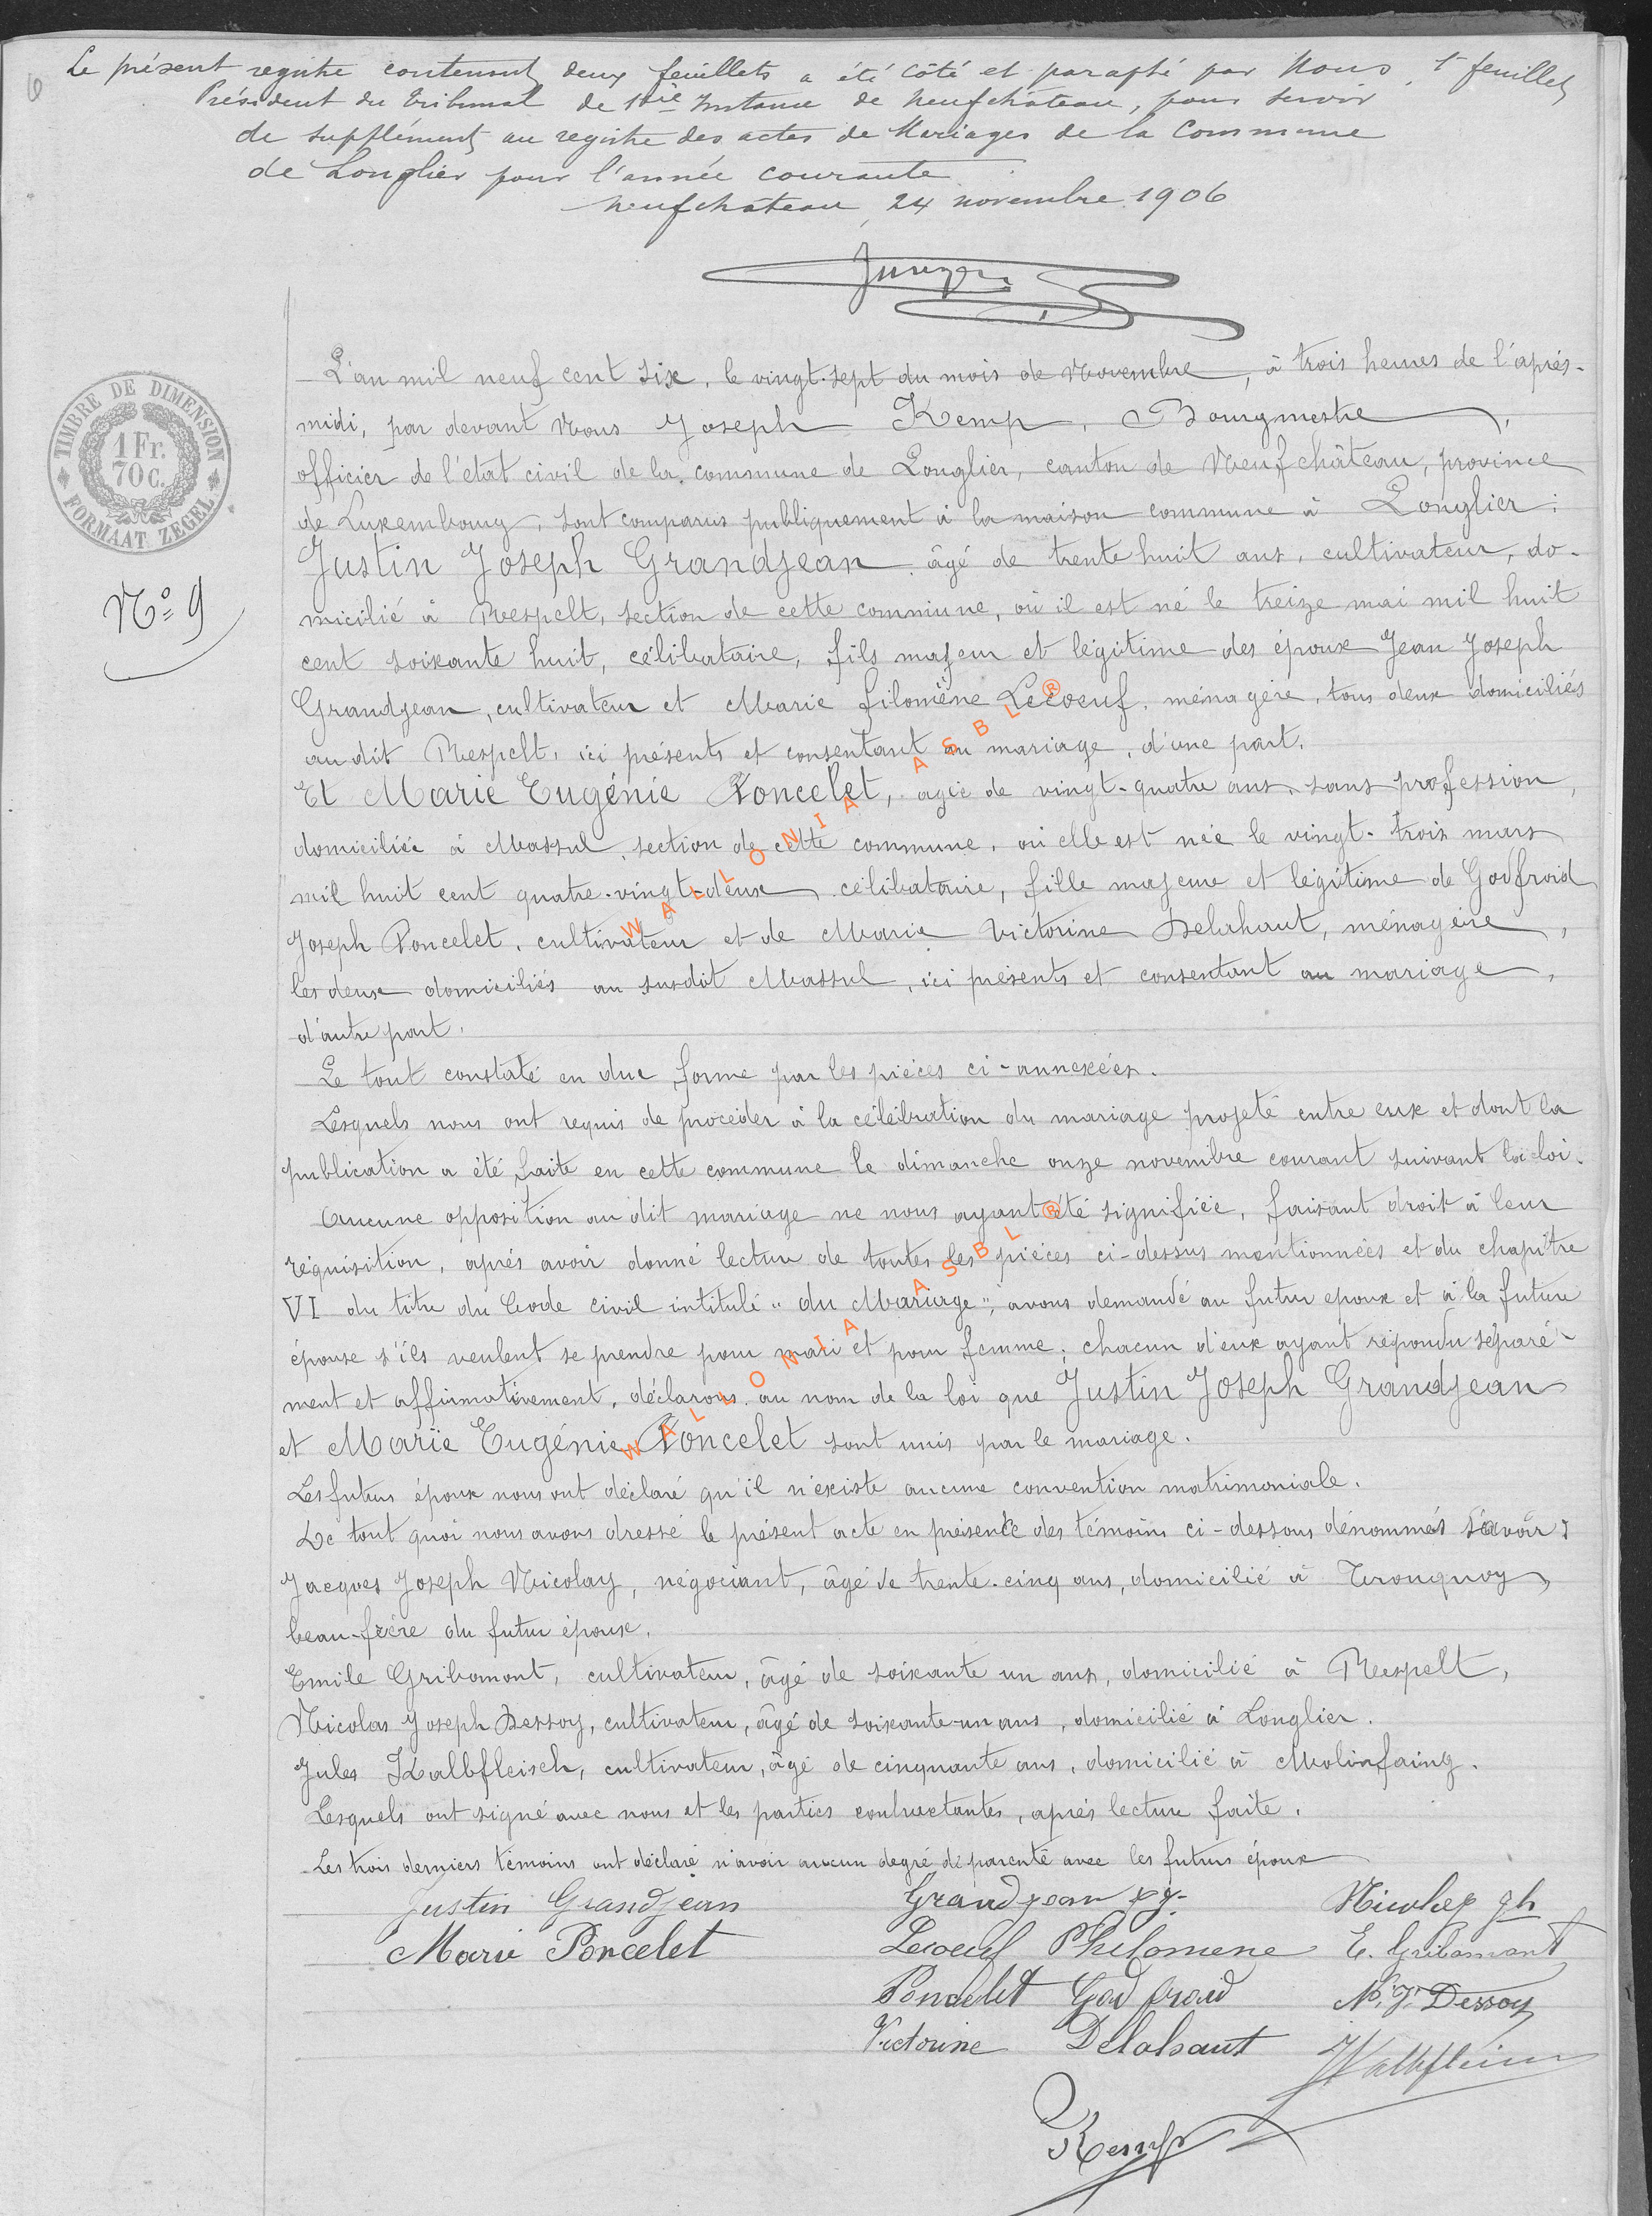 Le présent registre contenant deux feuillets a été côté et paraphé par Nous, 1r feuillet
Président du Tribunal de 1ière Instance de Neufchâteau, pour servir
de supplément au registre des actes de Mariages de la Commune
de Longlier pour l'année courante.
Neufchateau, 24 novembre 1906
TIMBRE DE DIMENSION
1 Fr.
70 C.
FORMAAT ZEGEL
N° 9
L'an mil neuf cent six, le vingt-sept du mois de Novembre, à trois heures de l'après-
midi, par devant Nous Joseph Kemp, Bourgmestre,
officier de l'état civil de la commune de Longlier, canton de Neufchâteau, province
de Luxembourg, sont comparus publiquement à la maison commune à Longlier:
Justin Joseph Grandjean, âgé de trente huit ans, cultivateur, do-
micilié à Respelt, section de cette commune, où il est né le treize mai mil huit
cent soixante huit, célibataire, fils majeur et légitime des époux Jean Joseph
Grandjean, cultivateur et Marie filomène Lecoeuf, ménagère, tous deux domiciliés
au dit Respelt, ici présents et consentant au mariage, d'une part.
Et Marie Eugénie Poncelet, agée de vingt-quatre ans, sans profession,
domiciliée à Massul, section de cette commune, où elle est née le vingt-trois mars
mil huit cent quatre-vingt-deux, célibataire, fille majeure et légitime de Godfroid
Joseph Poncelet, cultivateur et de Marie Victorine Delahaut, ménagère,
les deux domiciliés au susdit Massul, ici présents et consentant au mariage,
d'autre part.
Le tout constaté en due forme par les pièces ci-annexées.
Lesquels nous ont requis de procéder à la célébration du mariage projeté entre eux et dont la
publication a été faite en cette commune le dimanche onze novembre courant suivant la loi.
Aucune opposition au dit mariage ne nous ayant été signifiée, faisant droit à leur
réquisition, après avoir donné lecture de toutes les pièces ci-dessus mentionnées et du chapître
VI du titre du Code civil intitulé "du Mariage", avons demandé au futur epoux et à la future
épouse s'ils veulent se prendre pour mari et pour femme; chacun d'eux ayant répondu séparé-
ment et affirmativement, déclarons au nom de la loi que Justin Joseph Grandjean
et Marie Eugénie Poncelet sont unis par le mariage.
Les futurs époux nous ont déclaré qu'il n'existe aucune convention matrimoniale.
De tout quoi nous avons dressé le présent acte en présence des témoins ci-dessous dénommés savoir:
Jacques Joseph Nicolay, négociant, âgé de trente-cinq ans, domicilié à Tronquoy,
beau-frère du futur époux.
Emile Gribomont, cultivateur, âgé de soixante un ans, domicilié à Respelt,
Nicolas Joseph Dessoy, cultivateur, âgé de soixante-un ans, domicilié à Longlier.
Jules Kalbfleisch, cultivateur, âgé de cinquante ans, domicilié à Molinfaing.
Lesquels ont signé avec nous et les parties contractantes, après lecture faite.
Les trois derniers témoins ont déclaré n'avoir aucun degré de parenté avec les futurs époux
Justin Grandjean Grandjean
Marie Poncelet Lecoeuf Philomene E. Gribomont
Poncelet Godfroid N. J. Dessoy
Victorine Delahaut
Kemp
WALLONIA ASBL ®
WALLONIA ASBL ®